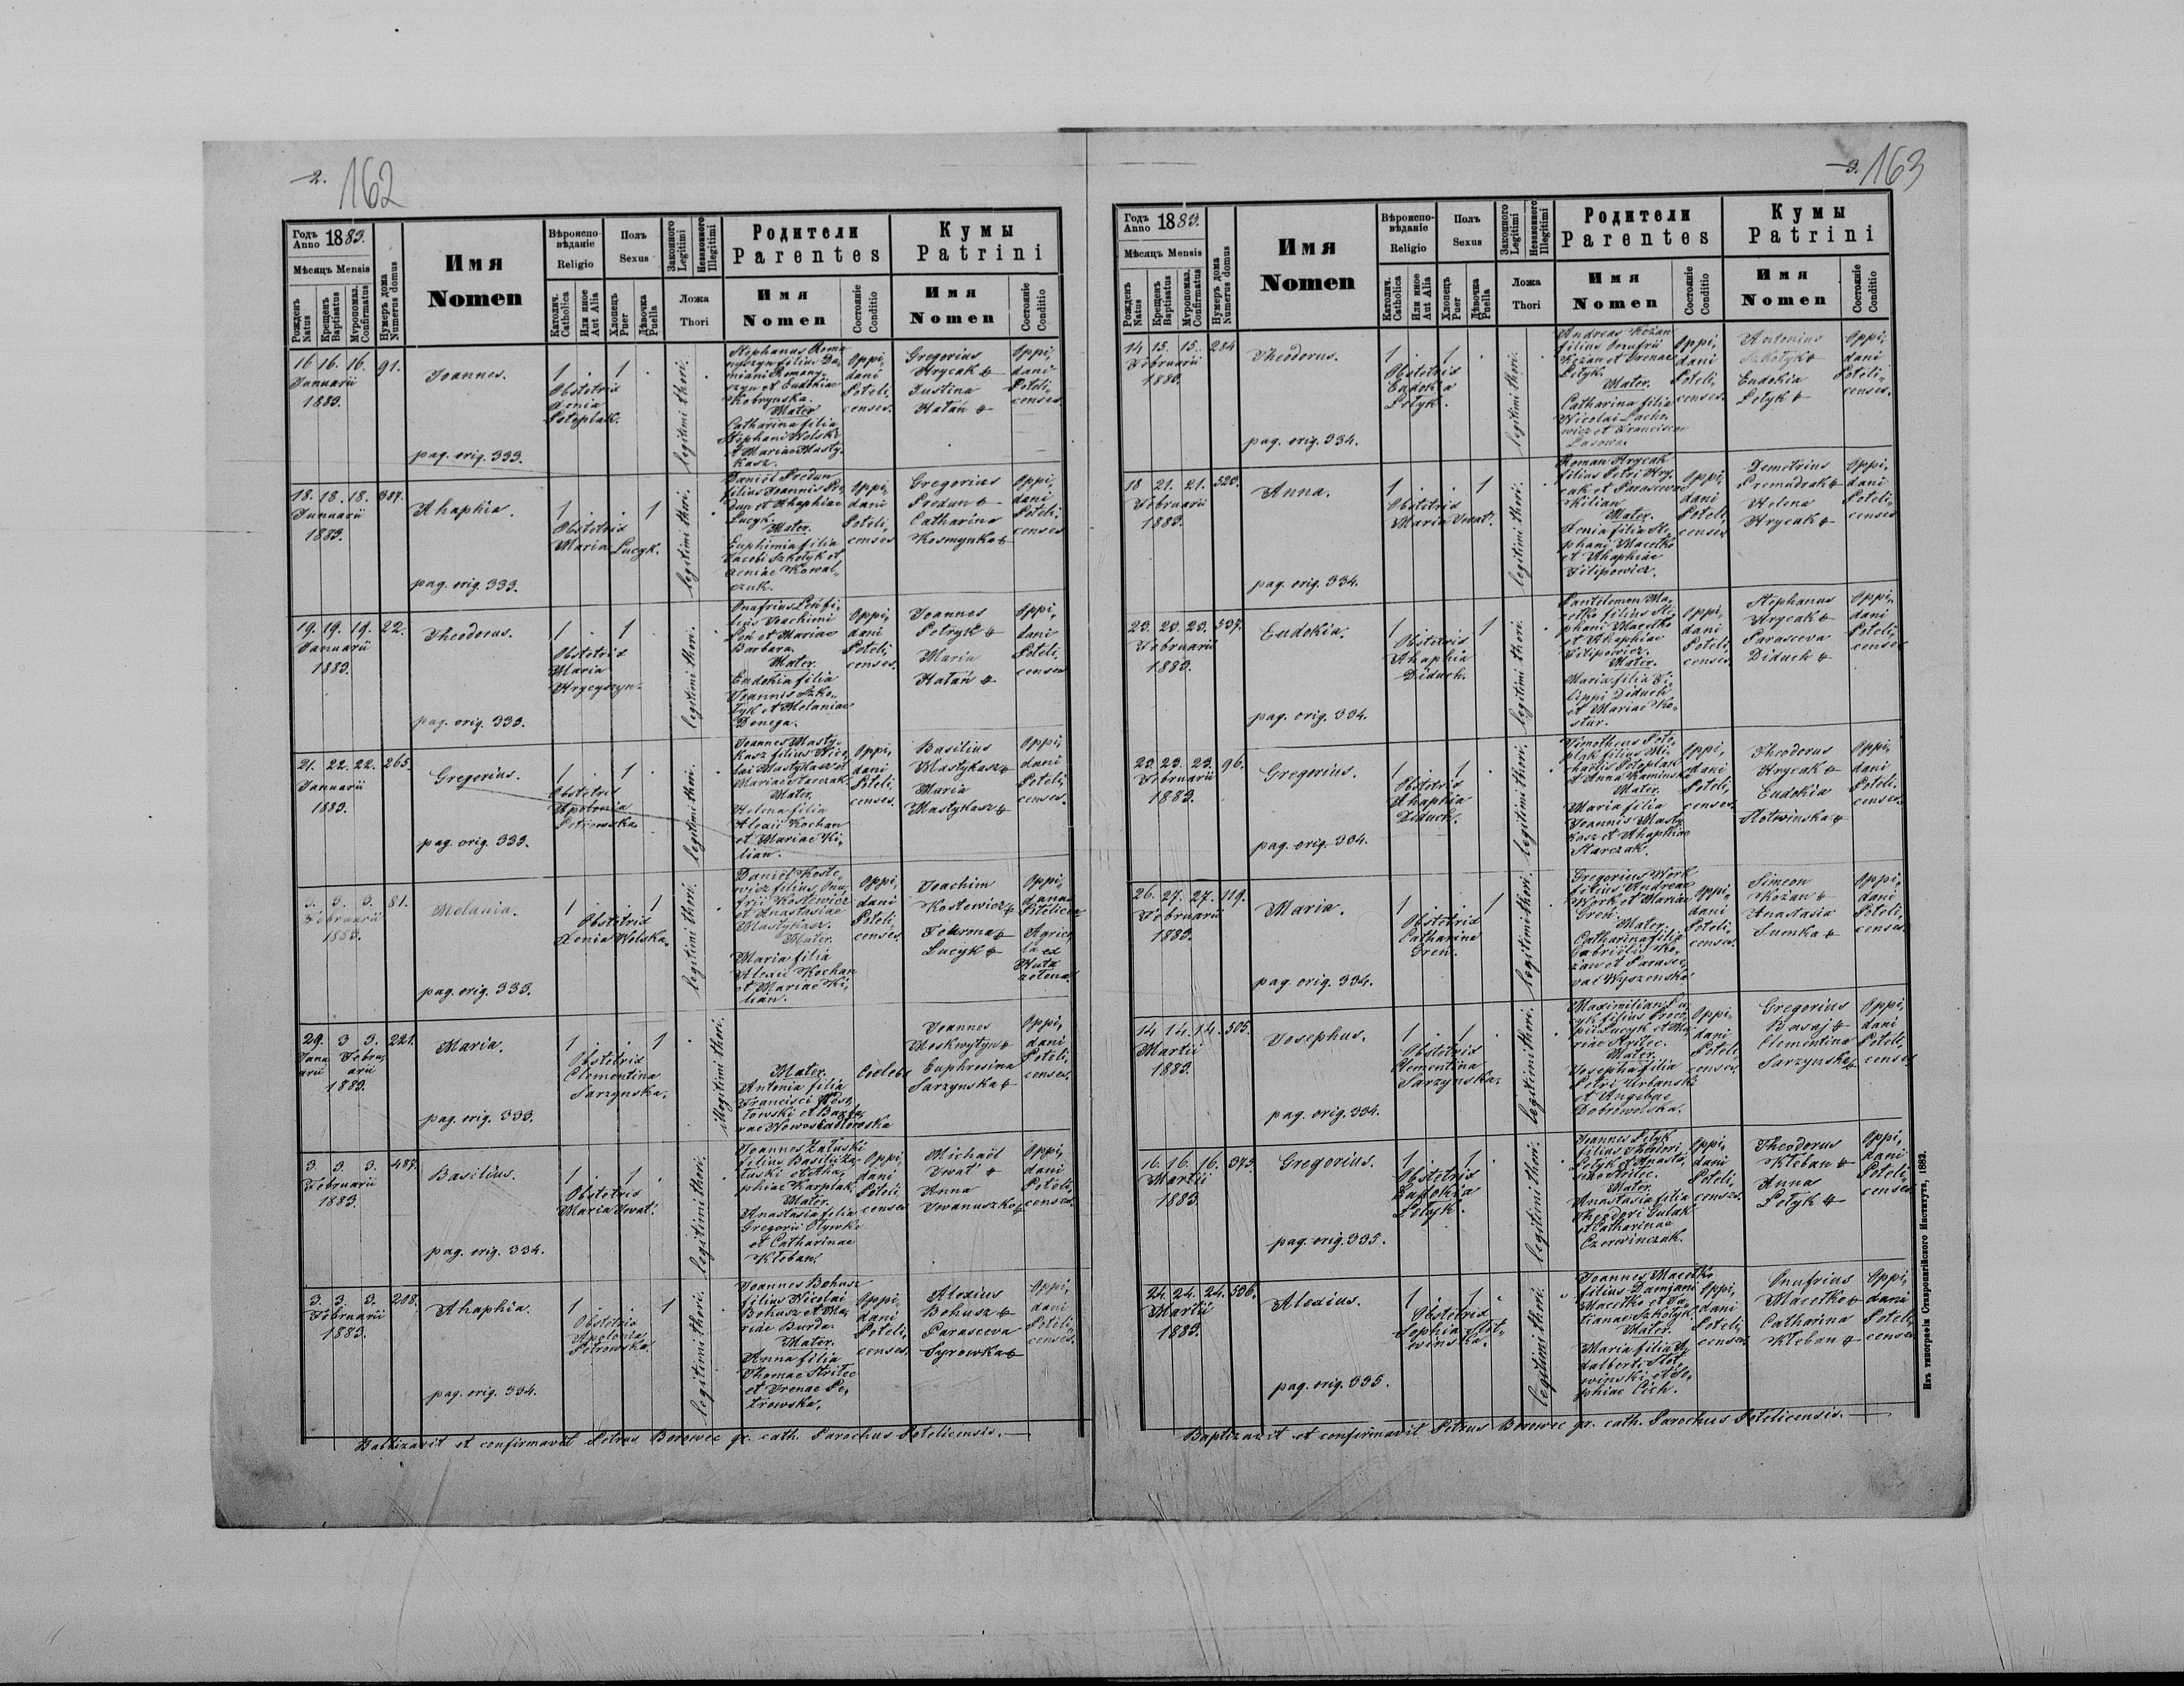 2. 162
Годъ Anno 1883.
Мѣсяцъ Mensis
Рожденъ Natus
Крещенъ Baptisatus
Мѵропомаз. Confirmatus
Нумеръ дома Numerus domus
Имя Nomen
Вѣроисповѣданіе Religio
Католич. Catholica
Или иное Aut Alia
Полъ Sexus
Хлопецъ Puer
Дѣвочка Puella
Законного Legitimi
Незаконного Illegitimi
Ложа Thori
Родители Parentes
Имя Nomen
Состояніе Conditio
Кумы Patrini
Имя Nomen
Состояніе Conditio
16 16. 16. 91.
Januarii
1883.
Joannes.
pag. orig. 333.
1 . 1 .
Obstetrix
Xenia
Potoplak.
legitimi thori.
Stephanus Roma
nyszyn filius Da
miani Romany
szyn et Eudokiae
Kobrynska.
Mater
Catharina filia
Stephani Wolski
et Mariae Masty
kasz.
Oppi,
dani
Poteli,
censes.
Gregorius
Hrycak &
Justina
Hatań &
Oppi,
dani
Poteli,
censes.
18. 18. 18. 387.
Januarii
1883.
Ahaphia.
pag. orig. 333.
1 . . 1
Obstetrix
Maria Lucyk.
legitimi thori.
Daniel Predun
filius Joannis Pre,
dun et Ahaphiae
Lucyk.
Mater.
Euphimia filia
Jacobi Szkołyk et
Xeniae Kowal,
czuk.
Oppi,
dani
Poteli,
censes
Gregorius
Predun &
Catharina
Kosmynka &
Oppi,
dani
Poteli,
censes
19. 19. 19. 22.
Januarii
1883.
Theodorus.
pag. orig. 333.
1 . 1
Obstetrix
Maria
Hrycyszyn.
legitimi thori.
Onufrius Leń fi,
lius Joachimi
Leń et Mariae
Barbara.
Mater.
Eudokia filia
Joannis Szko,
łyk et Melaniae
Donega.
Oppi,
dani
Poteli,
censes.
Joannes
Petryk &
Maria
Hatań &
Oppi,
dani
Poteli,
censes
21. 22. 22. 265.
Januarii
1883.
Gregorius.
pag. orig. 333.
1 . 1 .
Obstetrix
Apolonia
Petrowska
legitimi thori.
Joannes Masty,
kasz filius Nico,
lai Mastykasz et
Mariae Starczak.
Mater.
Helena filia
Alexii Kochan
et Mariae Ki,
lian.
Oppi,
dani
Poteli,
censes.
Basilius
Mastykasz &
Maria
Mastykasz &
Oppi,
dani
Poteli,
censes.
3. 3. 3. 81.
Februarii
1883.
Melania.
pag. orig. 333.
1 . . 1
Obstetrix
Xenia Wolska.
legitimi thori.
Daniel Koste,
wicz filius Onu,
frii Kostewicz
et Anastasiae
Mastykasz.
Mater.
Maria filia
Alexii Kochan
et Mariae Ki,
lian.
Oppi,
dani
Poteli,
censes.
Joachim
Kostewicz &
Lucyk &
29. 3 3. 221.
Janu Febru,
arii arii
1883.
Maria.
pag. orig. 333.
1 . . 1
Obstetrix
Clementina
Sarzynska.
illegitimi thori.
Mater.
Antonia filia
Francisci Woso,
łowski et Barba,
rae
Joannes
Moskwytyn &
Euphrosina
Sarzynska &
Oppi,
dani
Poteli,
censes.
3 3. 3. 487.
Februarii
1883.
Basilius.
pag. orig. 334.
1 . 1 .
Obstetrix
Maria Iwat.
legitimi thori.
Joannes Załuski
filius Basilii Za,
łuski et Aha,
phiae Karplak.
Mater.
Anastasia filia
Gregorii Olywka
et Catharinae
Kłeban.
Oppi,
dani
Poteli,
censes
Michael
Iwat &
Anna
Iwanuszko &
Oppi,
dani
Poteli,
censes
3. 3. 3. 208.
Februarii
1883.
Ahaphia.
pag. orig. 334.
1 . . 1
Obstetrix
Apolonia
Petrowska.
legitimi thori.
Joannes Bohusz
filius Nicolai
Bohusz et Ma,
riae Burda.
Mater.
Anna filia
Thomae Striłec
et Irenae Pe,
trowska.
Oppi,
dani
Poteli,
censes.
Alexius
Bohusz &
Parasceva
Syrowka &
Oppi,
dani
Poteli,
censes.
Babtizavit et confirmavit Petrus Borowec gr. cath. Parochus Potelicensis.
3. 163
Годъ Anno 1883.
Мѣсяцъ Mensis
Рожденъ Natus
Крещенъ Baptisatus
Мѵропомаз. Confirmatus
Нумеръ дома Numerus domus
Имя Nomen
Вѣроисповѣданіе Religio
Католич. Catholica
Или иное Aut Alia
Полъ Sexus
Хлопецъ Puer
Дѣвочка Puella
Законного Legitimi
Незаконного Illegitimi
Ложа Thori
Родители Parentes
Имя Nomen
Состояніе Conditio
Кумы Patrini
Имя Nomen
Состояніе Conditio
14 15. 15. 284
Februarii
1883.
Theodorus.
pag. orig. 334.
1 . 1 .
Obstetrix
Eudokia
Łotyk.
legitimi thori.
Andreas Kożan
filius Onufrii
Kożan et Irenae
Łotyk.
Mater.
Catharina filia
Nicolai Lacho
wicz et Franciscae
Lasowa
Oppi,
dani
Poteli,
censes.
Antonius
Szkołyk &
Eudokia
Łotyk &
Oppi,
dani
Poteli,
censes.
18 21. 21. 520.
Februarii
1883.
Anna.
pag. orig. 334.
1 . . 1
Obstetrix
Maria Iwat.
legitimi thori.
Roman Hrycak
filius Petri Hry,
cak et Parascevae
Kilian.
Mater.
Xenia filia Ste,
phani Macełko
et Ahaphiae
Filipowicz.
Oppi,
dani
Poteli,
censes
Demetrius
Premudrak &
Helena
Hrycak &
Oppi,
dani
Poteli,
censes
23. 23. 23. 537.
Februarii
1883.
Eudokia.
pag. orig. 334.
1 . . 1
Obstetrix
Ahaphia
Diduch.
legitimi thori.
Pantelemon Ma,
cełko filius Ste,
phani Macełko
et Ahaphiae
Filipowicz.
Mater.
Maria filia Fi,
lippi Diduch
et Mariae Ko,
stur.
Oppi,
dani
Poteli,
censes.
Stephanus
Hrycak &
Parasceva
Diduch &
Oppi,
dani
Poteli,
censes
23. 23. 23. 96.
Februarii
1883.
Gregorius.
pag. orig. 334.
1 . 1 .
Obstetrix
Ahaphia
Diduch.
legitimi thori.
Timotheus Poto,
plak filius Mi,
chaelis Potoplak
et Anna Kaminska
Mater.
Maria filia
Joannis Masty
kasz et Ahaphiae
Starczak.
Oppi,
dani
Poteli,
censes.
Theodorus
Hrycak &
Eudokia
Słotwinska &
Oppi,
dani
Poteli,
censes.
26. 27. 27. 119.
Februarii
1883.
Maria.
pag. orig. 334.
1 . . 1
Obstetrix
Catharina
Greń.
legitimi thori.
Gregorius Work
filius Andreae
Work et Mariae
Greń.
Mater.
Catharina filia
Gabriilis Ko,
żan et Parasce,
vae Wyszenska.
Oppi,
dani
Poteli,
censes.
Simeon
Kożan &
Anastasia
Sumka &
Oppi,
dani
Poteli,
censes.
14 14. 14. 505.
Martii
1883.
Josephus.
pag. orig. 334.
1 . 1
Obstetrix
Clementina
Sarzynska.
legitimi thori.
Maximilian Lu,
cyk filius Proco,
pii Lucyk et Ma,
riae Striłec.
Mater.
Josepha filia
Petri Urbanski
et Angelae
Dobrowolska.
Oppi,
dani
Poteli,
censes.
Gregorius
Basaj &
Clementina
Sarzynska &
Oppi,
dani
Poteli,
censes
16. 16. 16. 373.
Martii
1883.
Gregorius.
pag. orig. 335.
1 . 1
Obstetrix
Eudokia
Łotyk.
legitimi thori.
Joannes Łotyk
filius Theodori
Łotyk et Anasta,
siae Striłec.
Mater.
Anastasia filia
Theodori Gulak
et Catharinae
Czerwinczak.
Oppi,
dani
Poteli,
censes.
Theodorus
Kłeban &
Anna
Łotyk &
Oppi,
dani
Poteli,
censes
24. 24. 24. 536.
Martii
1883.
Alexius.
pag. orig. 335.
1 . 1
Obstetrix
Sophia Słot,
winska.
legitimi thori.
Joannes Macełko
filius Damjani
Macełko et Ta,
tianae Szkołyk.
Mater.
Maria filia A,
dalberti Słot,
winski et So,
phiae Cich.
Oppi,
dani
Poteli,
censes.
Onufrius
Macełko &
Catharina
Kłeban &
Oppi,
dani
Poteli,
censes
Baptizavit et confirmavit Petrus Borowec gr. cath. Parochus Potelicensis.
Изъ типографіи Ставропигійского Института, 1882.